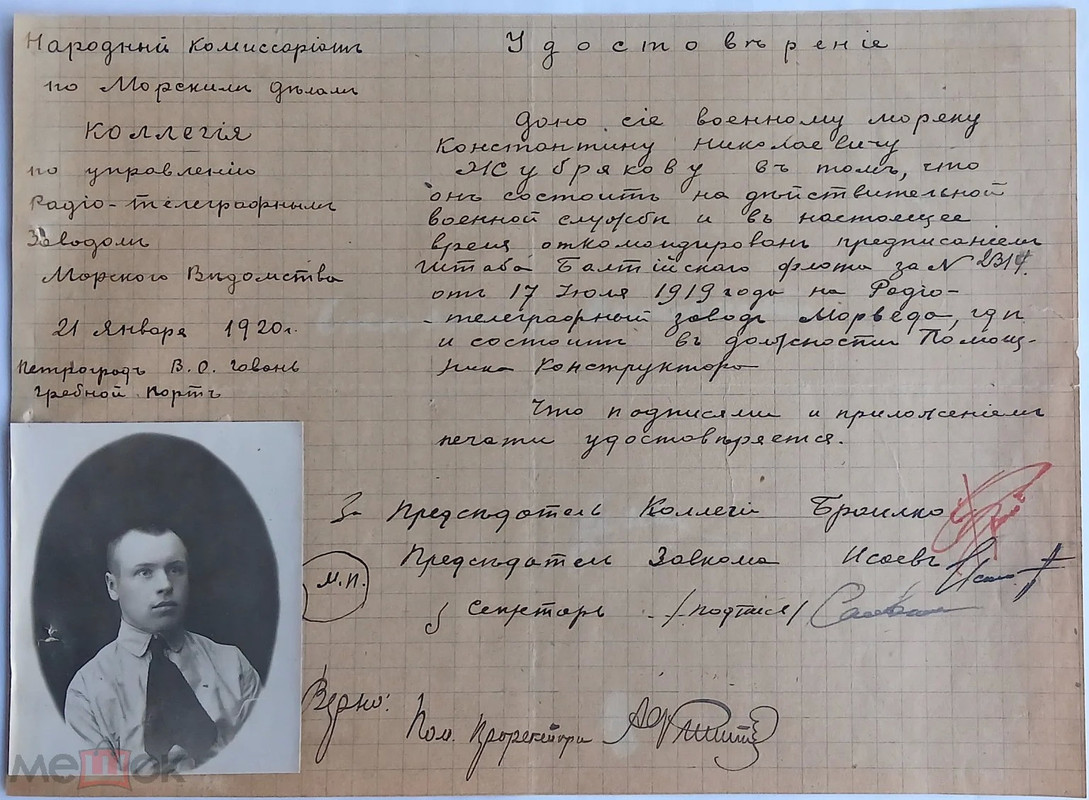 Народный комиссарiатъ
по Морскимъ дѣламъ
Коллегiя
по управленiю
Радiо-телеграфнымъ
Заводомъ
Морского Вѣдомства
21 Января 1920г.
Петроградъ В.О. Гавань
Гребной Портъ
Удостовѣренiе
дано сiе военному моряку
Константину Николаевичу
Жубрякову въ томъ, что
онъ состоитъ на дѣйствительной
военной службѣ и въ настоящее
время откомандированъ предписанiемъ
Штаба Балтiйскаго флота за N 2314.
отъ 17 Iюля 1919 года на Радiо-
телеграфный заводъ Морведа, гдѣ
и состоитъ въ должности Помощ-
ника Конструктора
Что подписями и приложенiемъ
печати удостовѣряется.
За Предсѣдатель Коллегiи Браилко
Предсѣдатель Завкома Исаевъ
М.П.
Секретарь /подпись/
Вѣрно:
Пом. Проректора
мешок